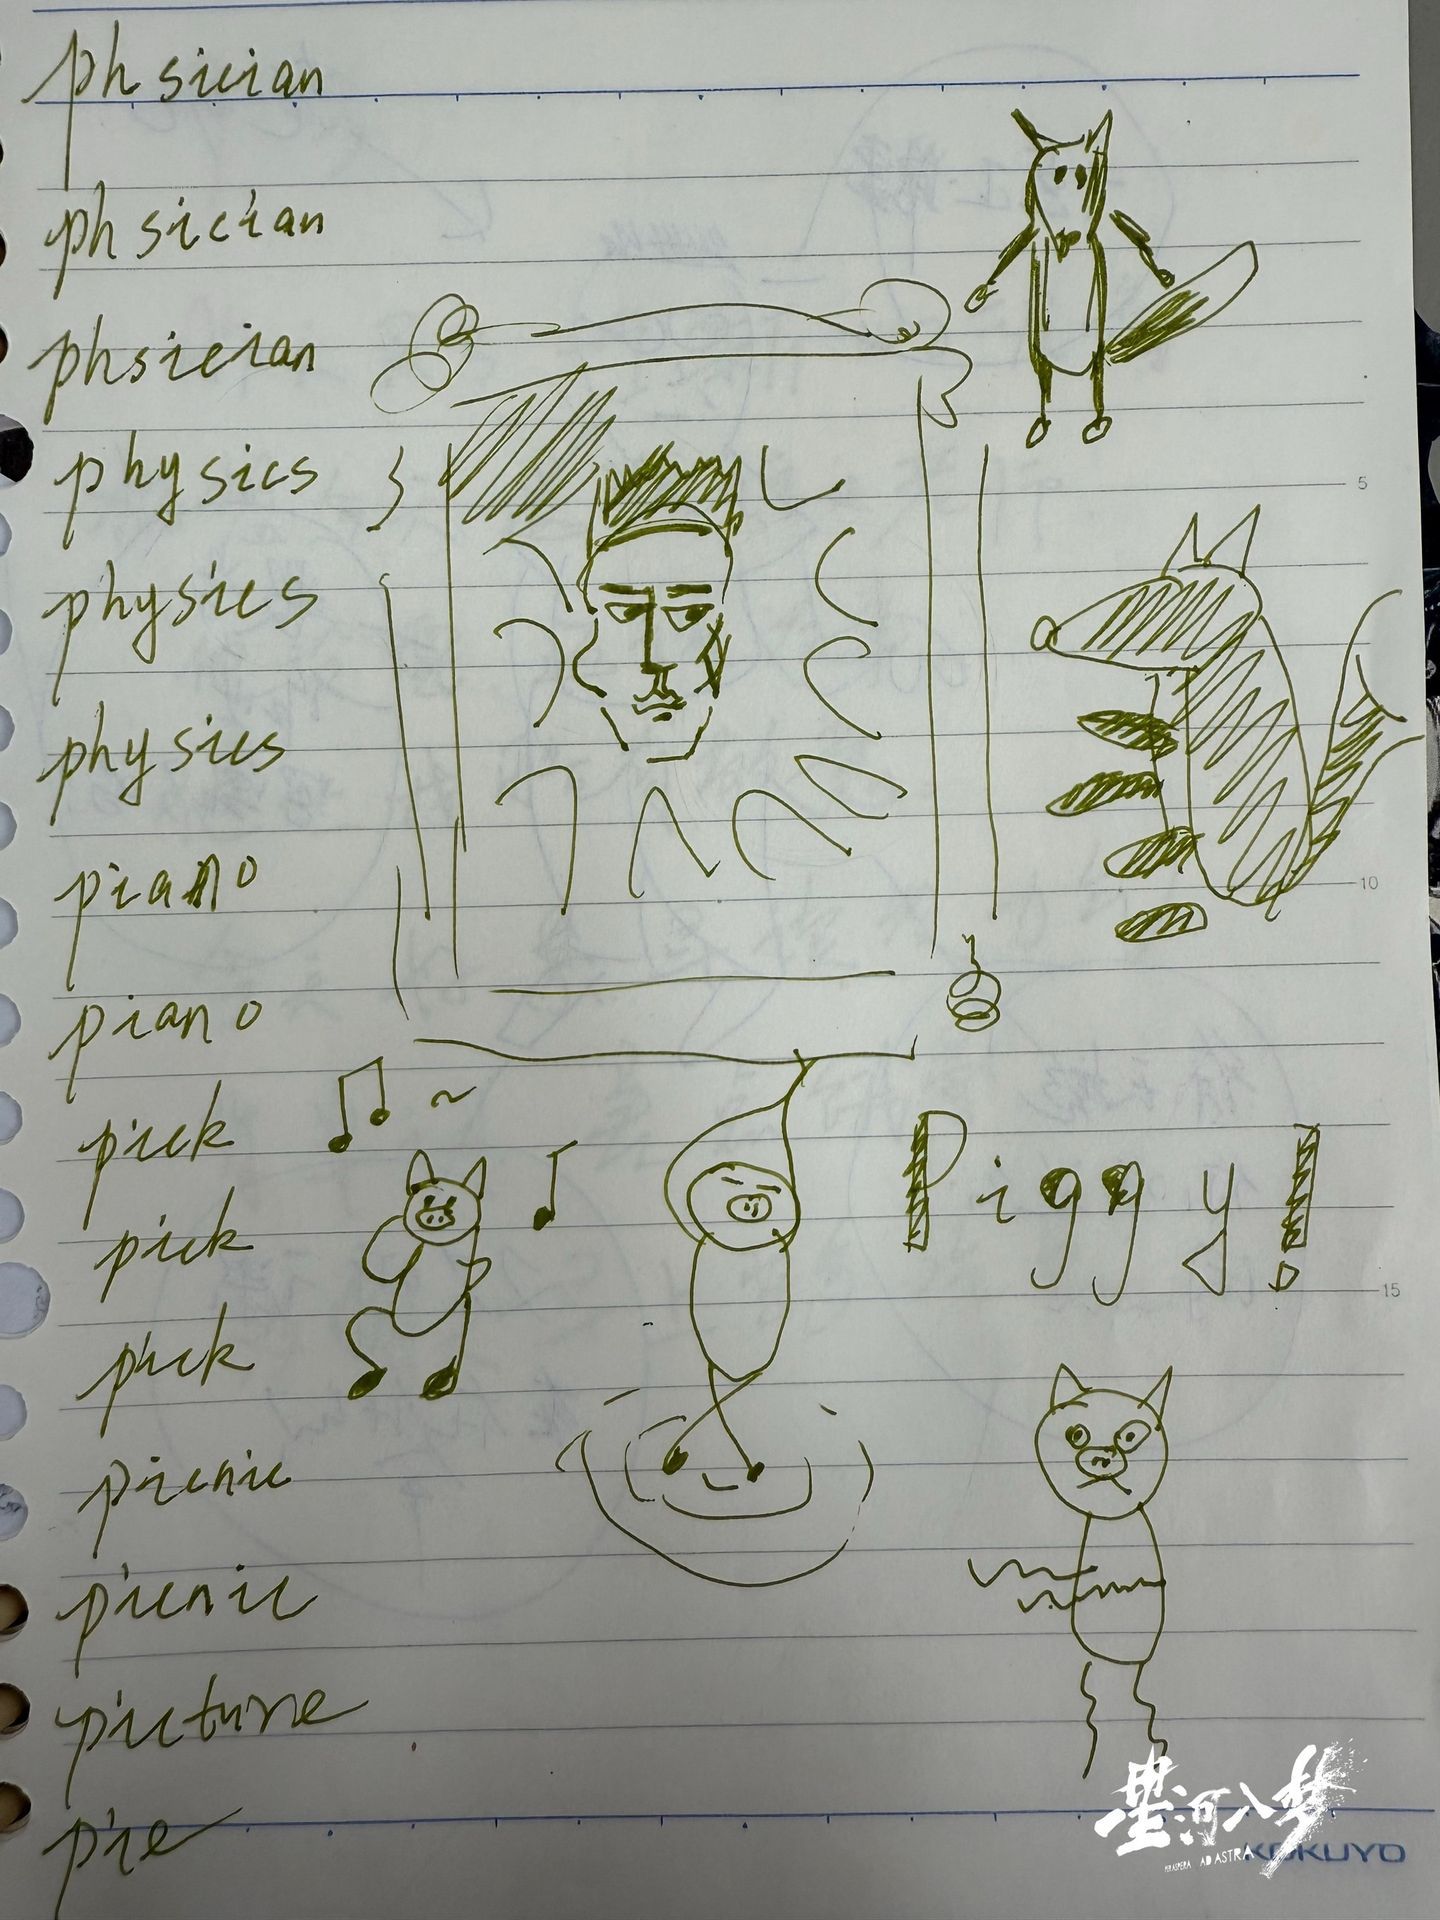 phsician
phsician
phsician
physics
5
physics
physics
piano
10
piano
pick
Piggy!
pick
15
pick
picnic
picnic
picture
星河入梦
PER ASPERA AD ASTRA
KOKUYO
pie